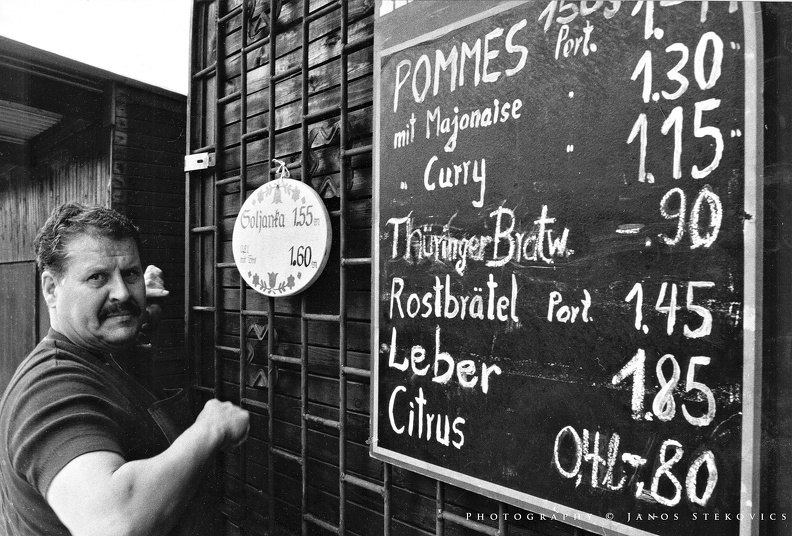 Soljanka 1.55
1.60
150g
POMMES Port. 1.30
mit Majonaise " 1.15"
" Curry "
Thüringer Bratw. -.90
Rostbrätel Port. 1.45
Leber 1.85
Citrus 0,4l -.80
PHOTOGRAPHY © JANOS STEKOVICS